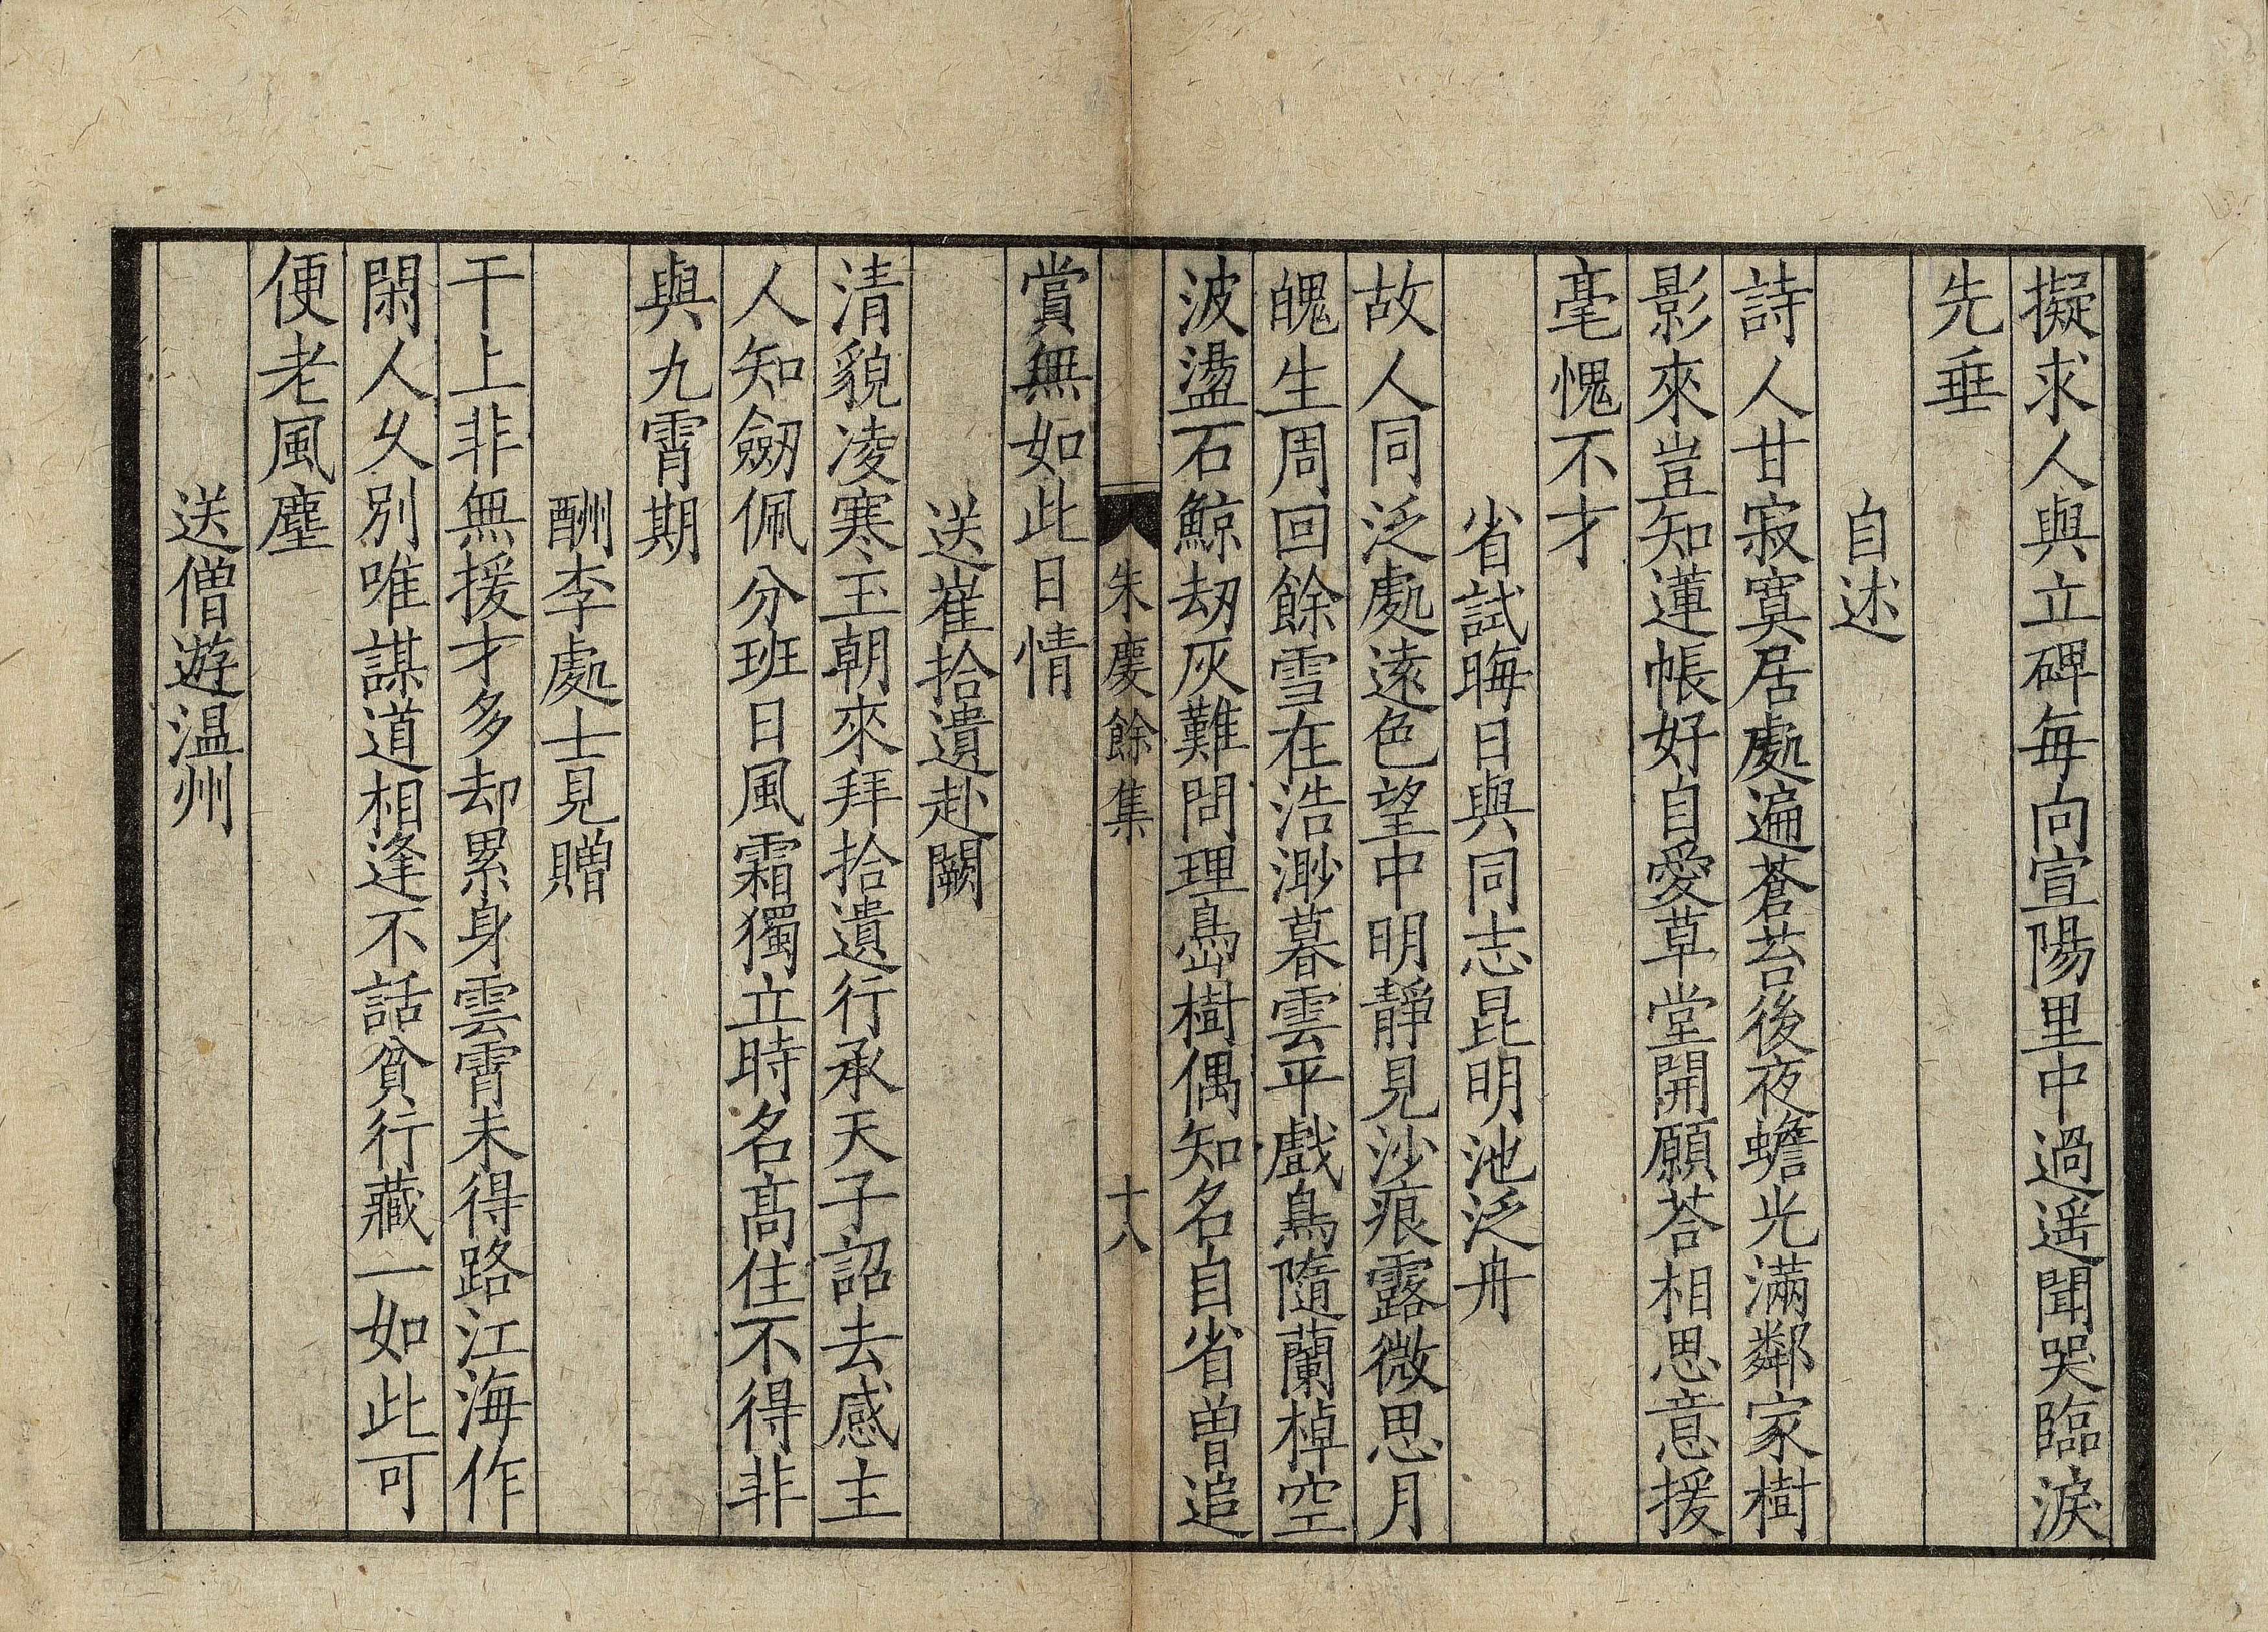 擬求人與立碑每向宣陽里中過遥聞哭臨淚
先垂
自述
詩人甘寂寞居處遍蒼苔後夜蟾光滿鄰家樹
影來豈知蓮帳好自愛草堂開願荅相思意援
毫愧不才
省試晦日與同志昆明池泛舟
故人同泛處遠色望中明靜見沙痕露微思月
魄生周回餘雪在浩渺暮雲平戲鳥隨蘭棹空
波盪石鯨劫灰難問理島樹偶知名自省曽追
賞無如此日情
送崔拾遺赴闕
清貌凌寒玉朝來拜拾遺行承天子詔去感主
人知劒佩分班日風霜獨立時名髙住不得非
與九霄期
酬李處士見贈
干上非無援才多却累身雲霄未得路江海作
閑人久別唯謀道相逢不話貧行藏一如此可
便老風塵
送僧遊温州
朱慶餘集
十八